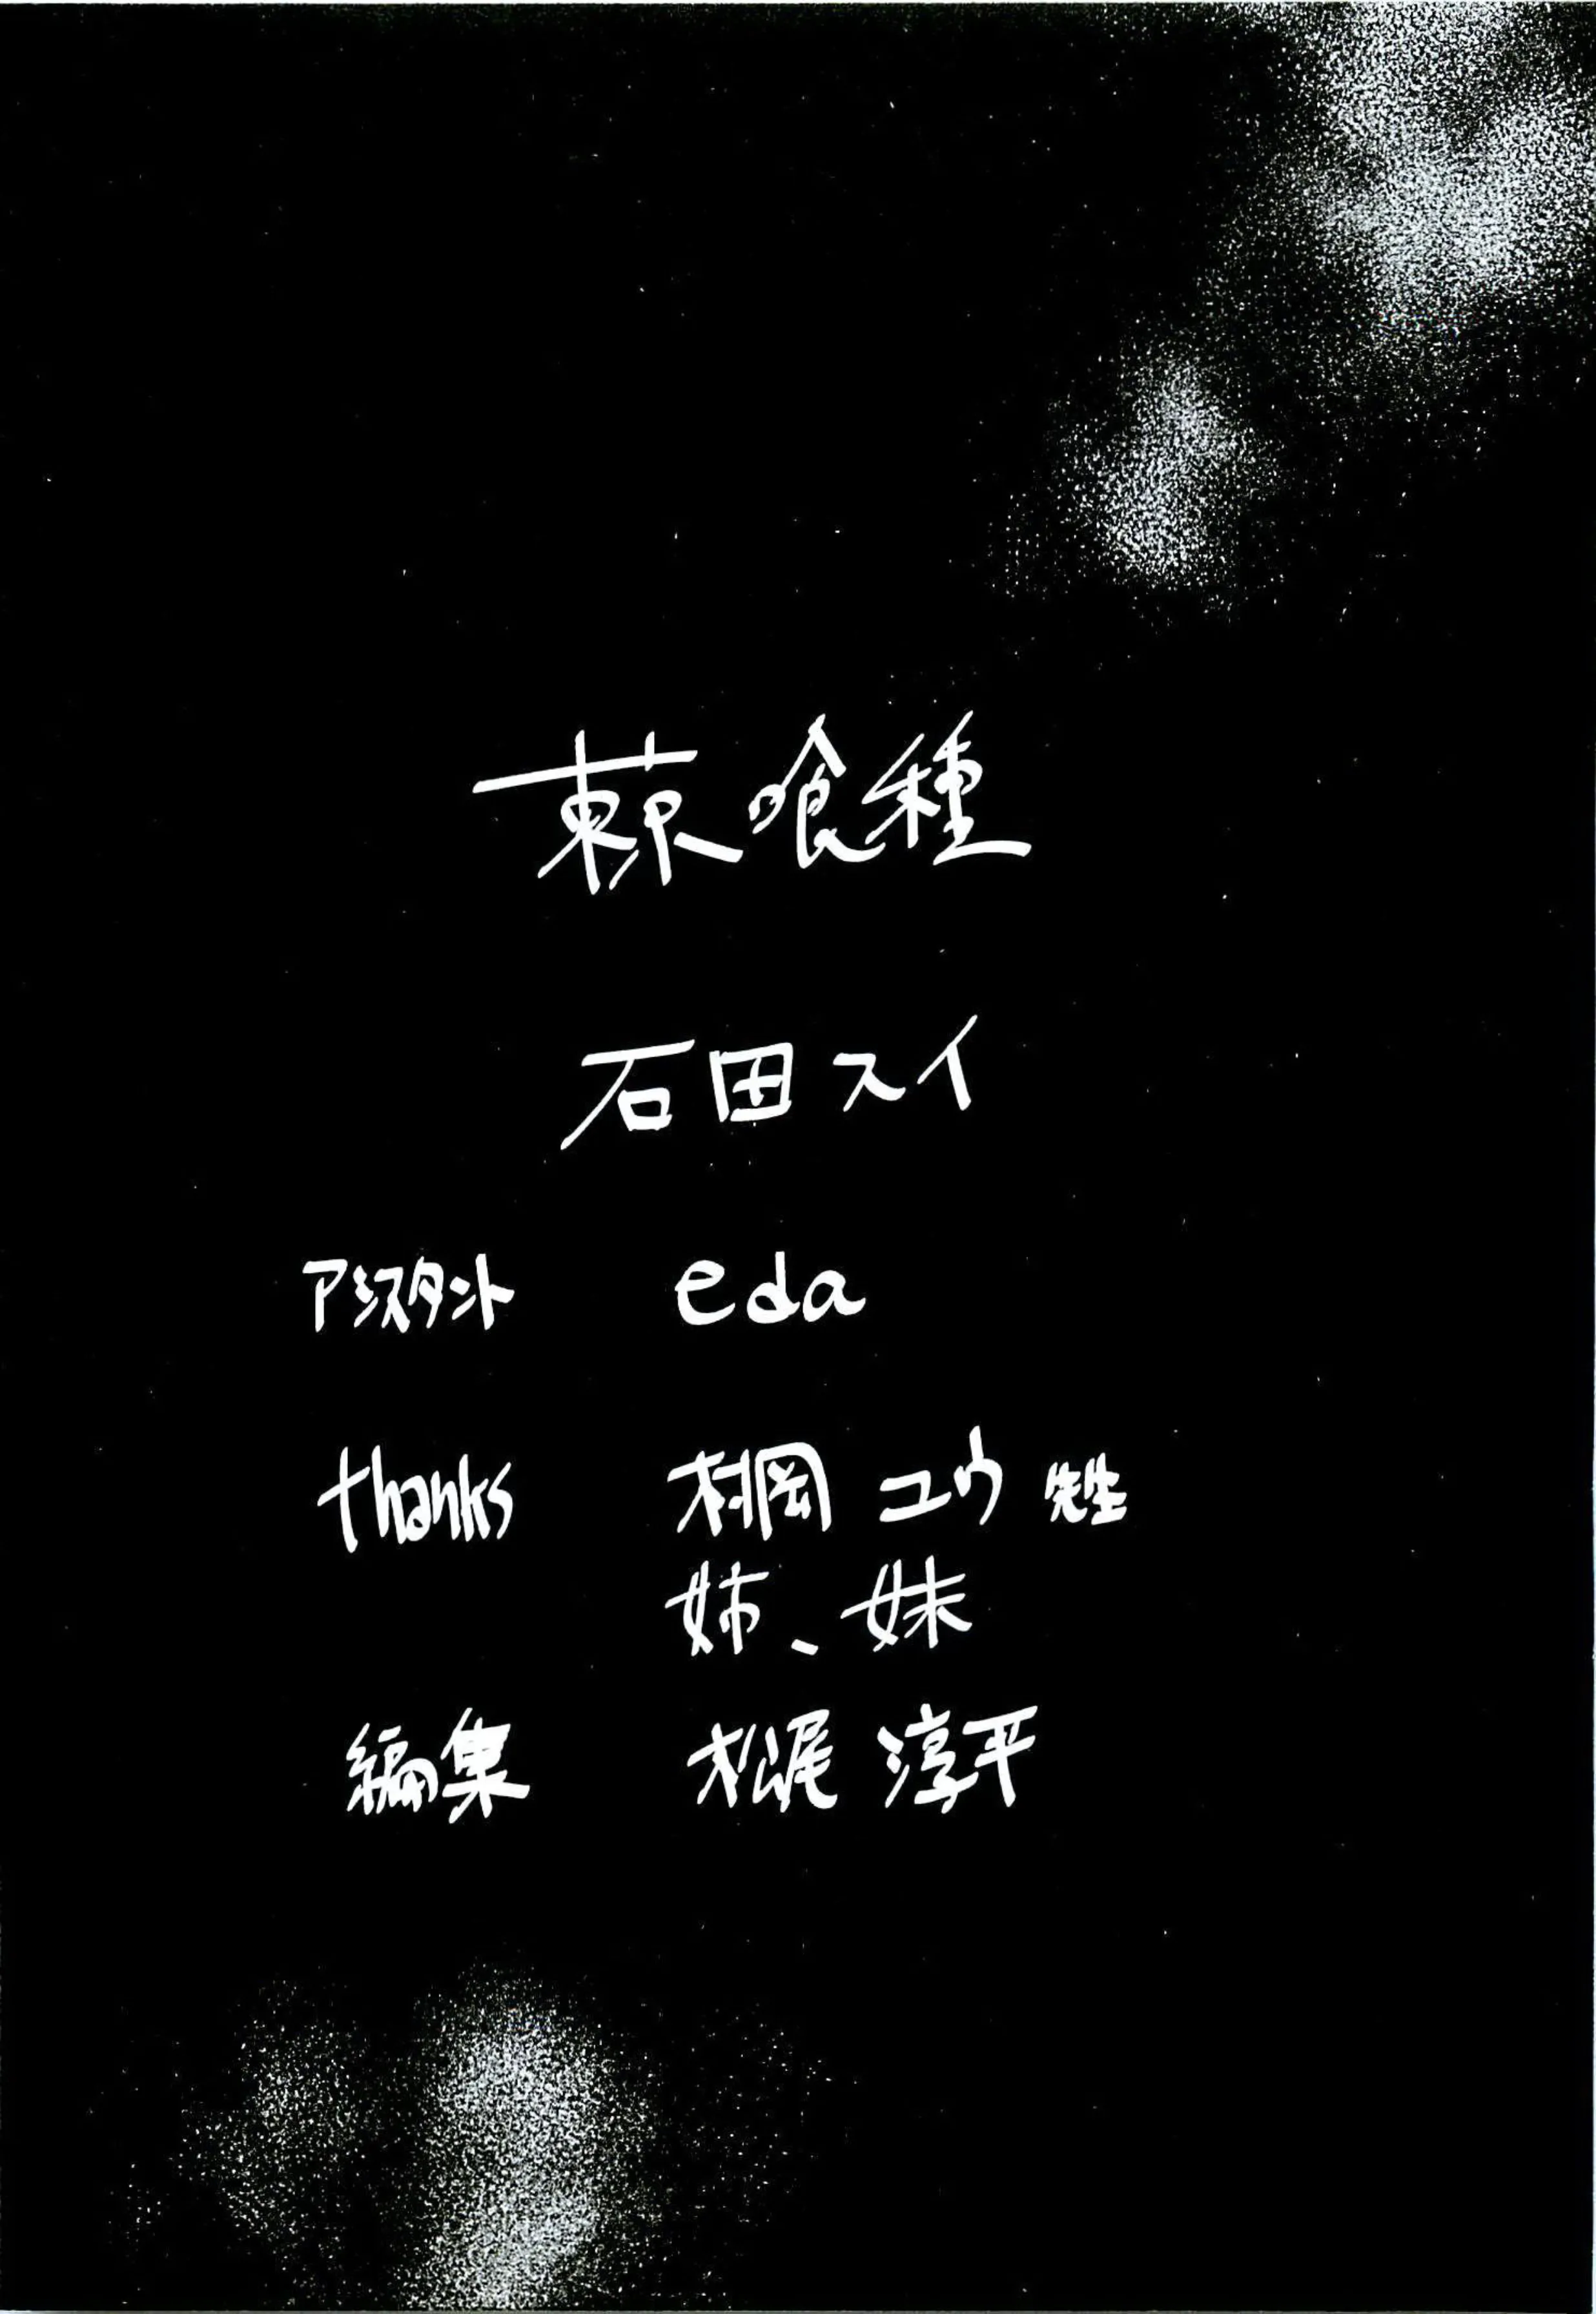 東京喰種
石田スイ
アシスタント eda
thanks 村岡 ユウ 先生
姉、妹
編集 松尾 淳平